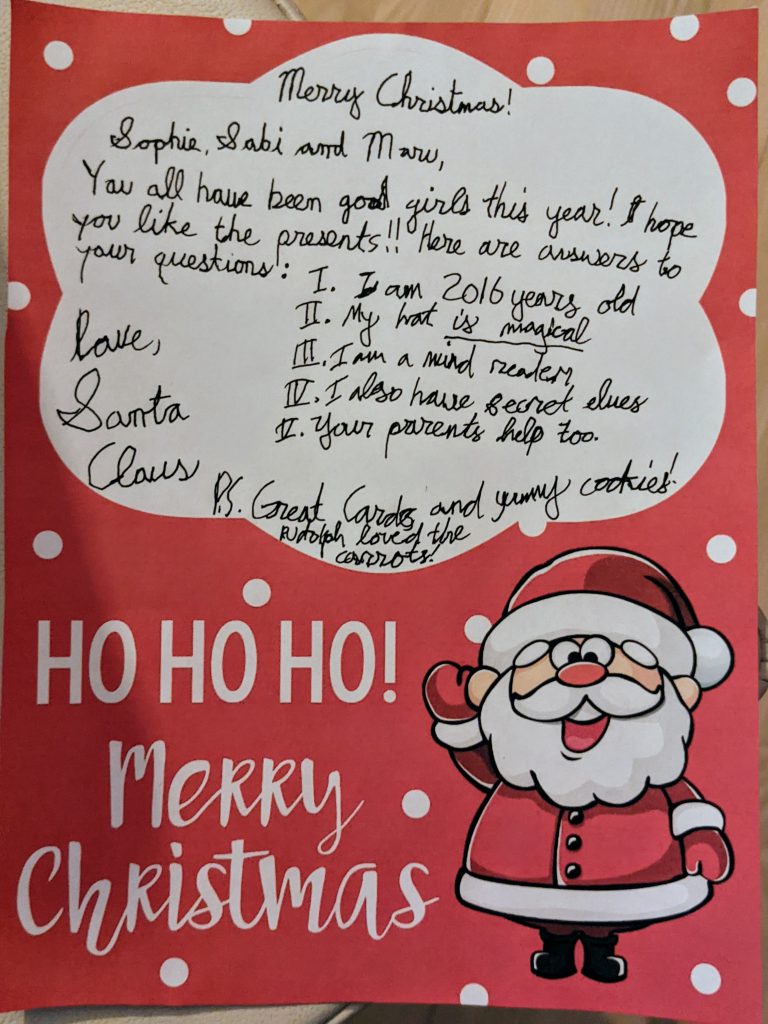 Merry Christmas!
Sophie, Sabi and Maru,
You all have been good girls this year! I hope
you like the presents!! Here are answers to
your questions:
I. I am 2016 years old
II. My hat is magical
III. I am a mind reader
IV. I also have secret elves
V. Your parents help too.
Love,
Santa
Claus
P.S. Great Cards and yummy cookies!
Rudolph loved the
carrots!
HO HO HO!
Merry
Christmas